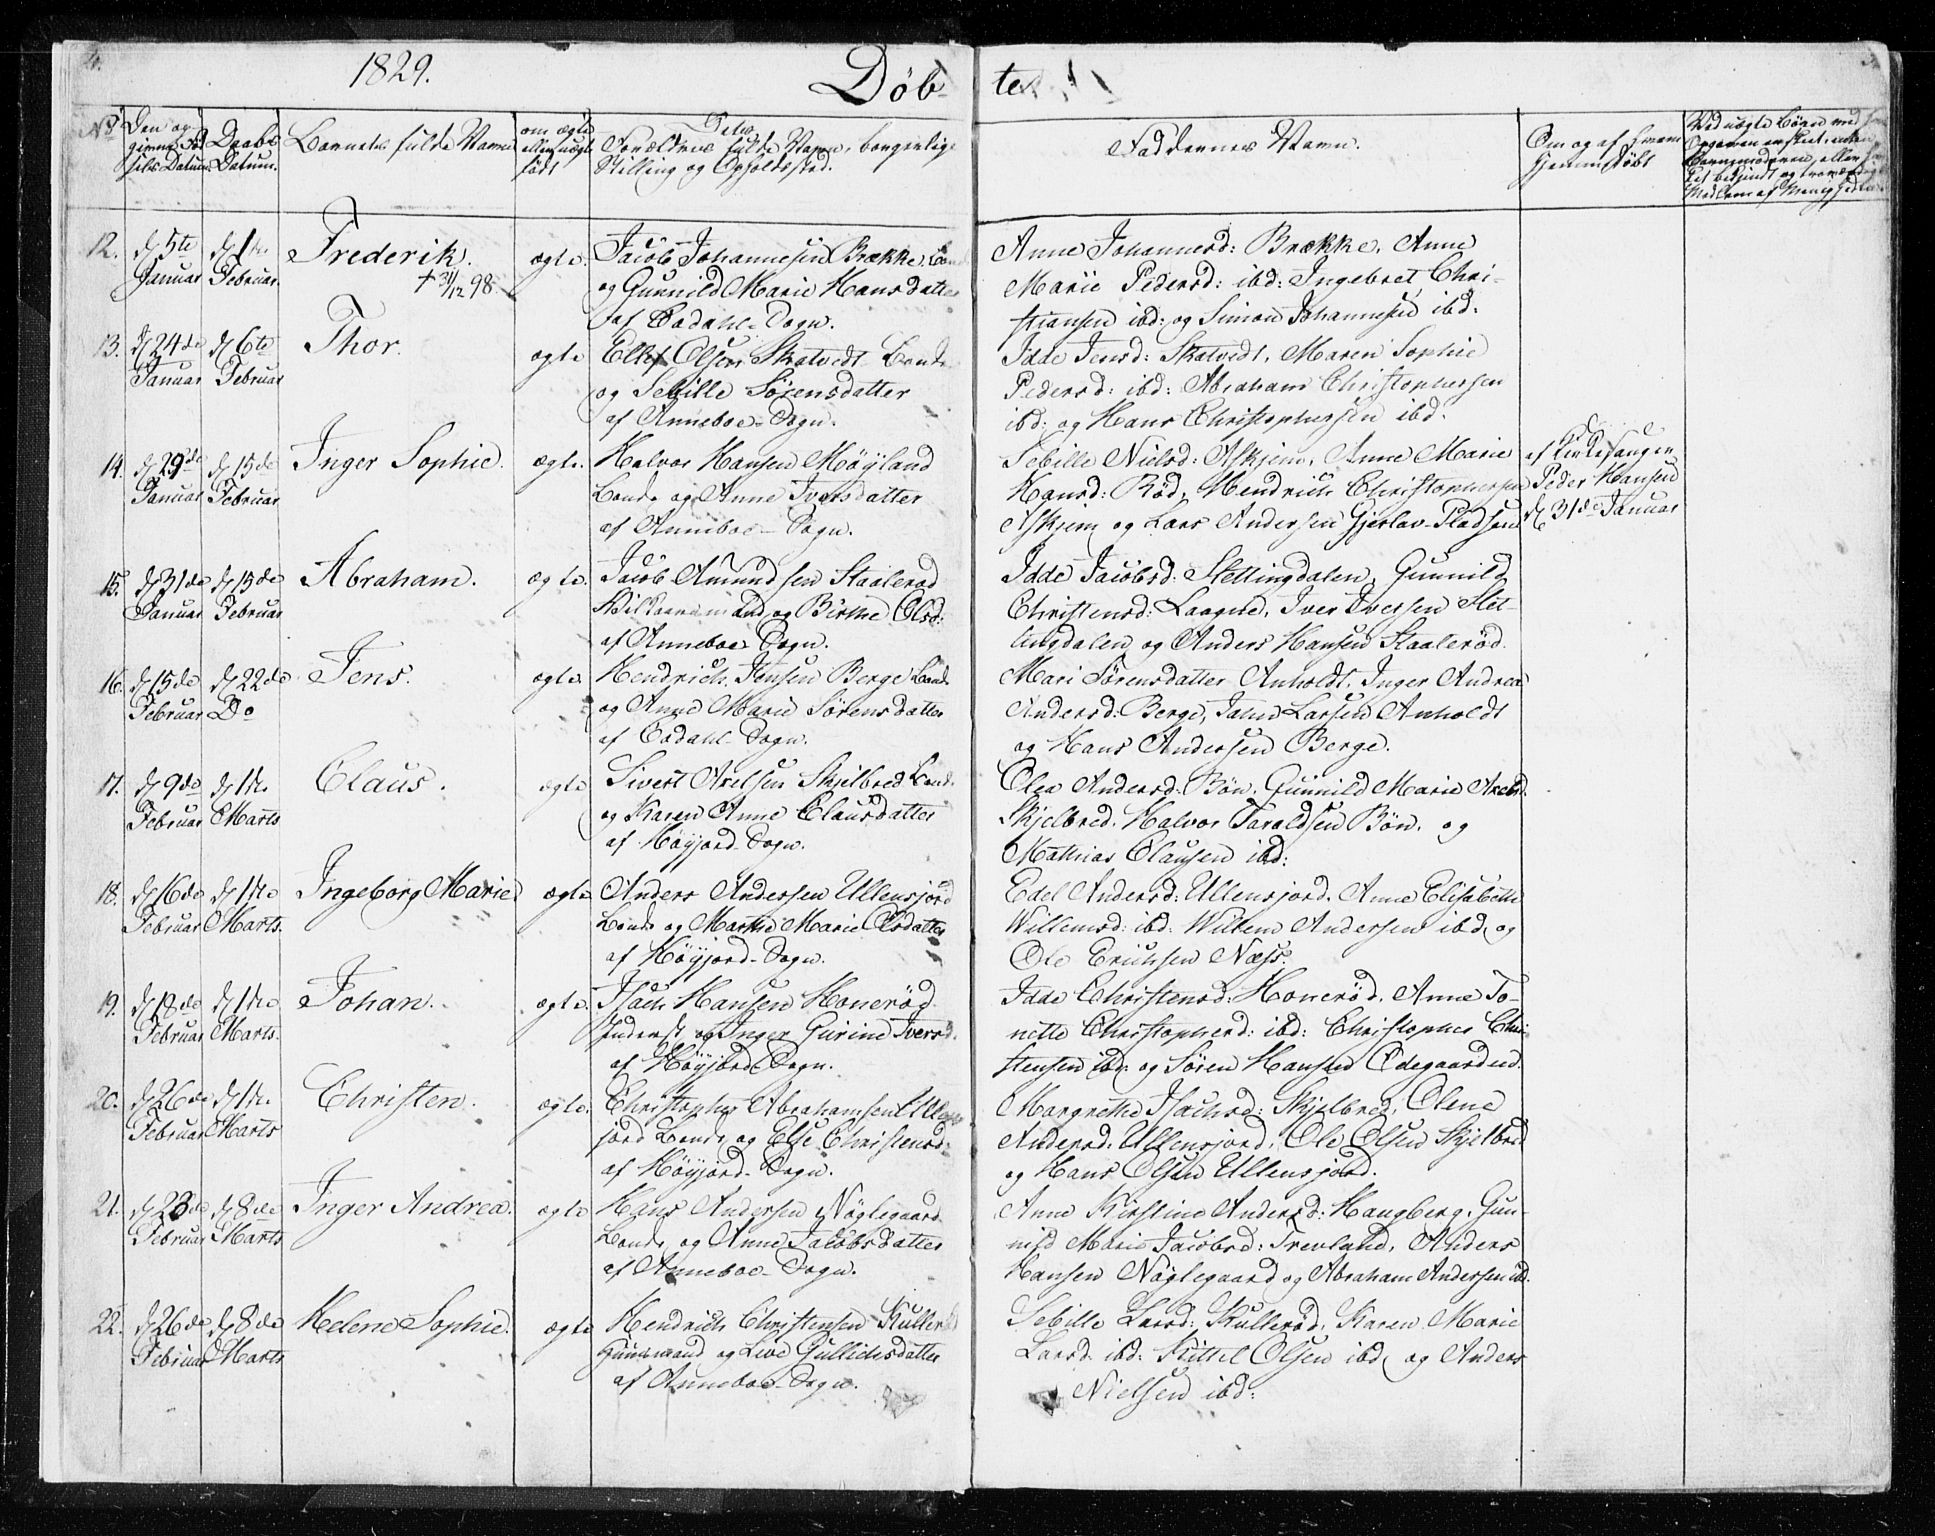 1829.
Døb-
te
No
Den og
Daabs
Datum.
Barnets fulde Navn
om ægte
eller uægte
født
Dets
Forældres fulde Navn, borgerlige
Stilling og Opholdssted.
Faddernes Navn.
Om og af hvem
hjemmedøbt
Ved uægte Børn
12. d 5te Januar d 1te Februar Frederik. † 31/12 98. ægte. Jacob Johannesen Brække, Bonde
og Gunnild Marie Hansdatter
af Sogn.
Anne Johannesd: Brække, Anne
Marie Pedersd: ibd: Ingebret Chri-
stiansen ibd: og Simon Johannesen ibd.
13. d 24de Januar d 6te Februar Thor. ægte Ellef Olsen Skatvedt Bonde
og Sebille Sørensdatter
af Anneboe-Sogn.
Idde Jensd: Skatvedt, Maren Sophie
Pedersd: ibd: Abraham Christophersen
ibd: og Hans Christophersen ibd.
14. d 29de Januar d 15de Februar Inger Sophie. ægte. Halvor Hansen Møyland
Bonde og Anne Iversdatter
af Anneboe-Sogn.
Sebille Nielsd: Askjem, Anne Marie
Hansd: Rød, Hendrich Christophersen
Askjem og Lars Andersen Gjerlav-Pladsen
af Kirkesanger
Peder Hansen
d 31de Januar
15. d 31de Januar d 15de Februar Abraham. ægte. Jacob Amundsen Staalerød
og Birthe Olsd:
af Anneboe Sogn.
Idde Jacobsd: Slettingdalen, Gunnild
Christensd: Laagne, Iver Iversen Slet-
tingdalen og Anders Hansen Staalerød.
16. d 15de Februar d 22de Do Jens. ægte. Hendrich Jensen Berge Bonde
og Anne Marie Sørensdatter
af Sogn.
Mari Sørensdatter Anholdt, Inger Andrea
Andersd: Berge, Larsen Anholdt
og Hans Andersen Berge.
17. d 9de Februar d 1te Marts Claus. ægte Sivert Axelsen Skjelbred Bonde
og Karen Anne Clausdatter
af Høyjord-Sogn.
Olea Andersd: Bøn, Gunnild Marie Axelsd.
Skjelbred, Halvor Taraldsen Bøn, og
Mathias Clausen ibd:
18. d 16de Februar d 1te Marts. Ingeborg Marie ægte Anders Andersen Ullensjord
Bonde og Marthe Marie Olsdatter
af Høyjord-Sogn.
Edel Andersd: Ullensjord, Anne Elisabethe
Willemsd: ibd: Willem Andersen ibd, og
Ole Erichsen Næss.
19. d 18de Februar d 1te Marts. Johan. ægte. Isach Hansen Honerød
Inderst og Inger Gurine Iversd.
af Høyjord Sogn.
Idde Christensd: Honerød, Anne To-
nette Christophersd: ibd: Christopher Chri-
stensen ibd: og Søren Hansen Ødegaarden.
20. d 26de Februar d 1te Marts Christen. ægte. Christopher Abrahamsen Ullens-
jord Bonde og Else Christensd:
af Høyjord-Sogn.
Margrethe Isachsd: Skjelbred, Olene
Andersd: Ullensjord, Ole Olsen Skjelbred
og Hans Olsen Ullensjord.
21. d 23de Februar d 8de Marts Inger Andrea. ægte Hans Andersen Nøglegaard
Bonde og Anne Jacobsdatter
af Anneboe-Sogn.
Anne Kirstine Andersd: Haugberg, Gun-
nild Marie Jacobsd: Trevland, Anders
Hansen Nøglegaard og Abraham Andersen ibd.
22. d 26de Februar d 8de Marts Helene Sophie. ægte Hendrich Christensen Kullerød
Huusmand og Live Gullichsdatter
af Anneboe-Sogn.
Sebille Larsd: Kullerød, Karen Marie
Larsd: ibd: Kittel Olsen ibd, og Anders
Nielsen ibd: